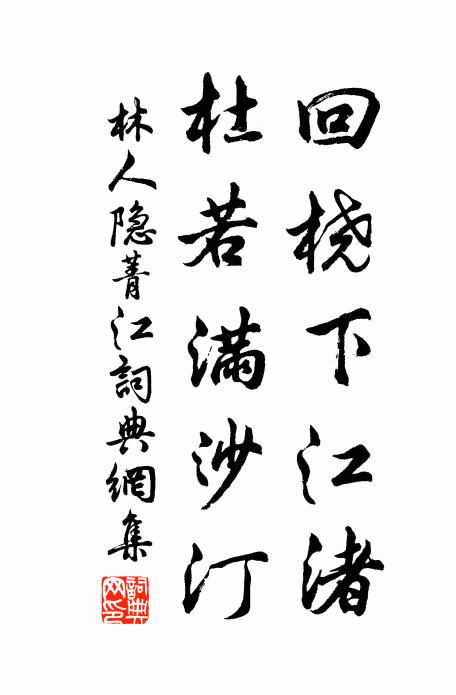 回桡下江渚
杜若满沙汀
林人隐菁江詞典網集
詞典
网印